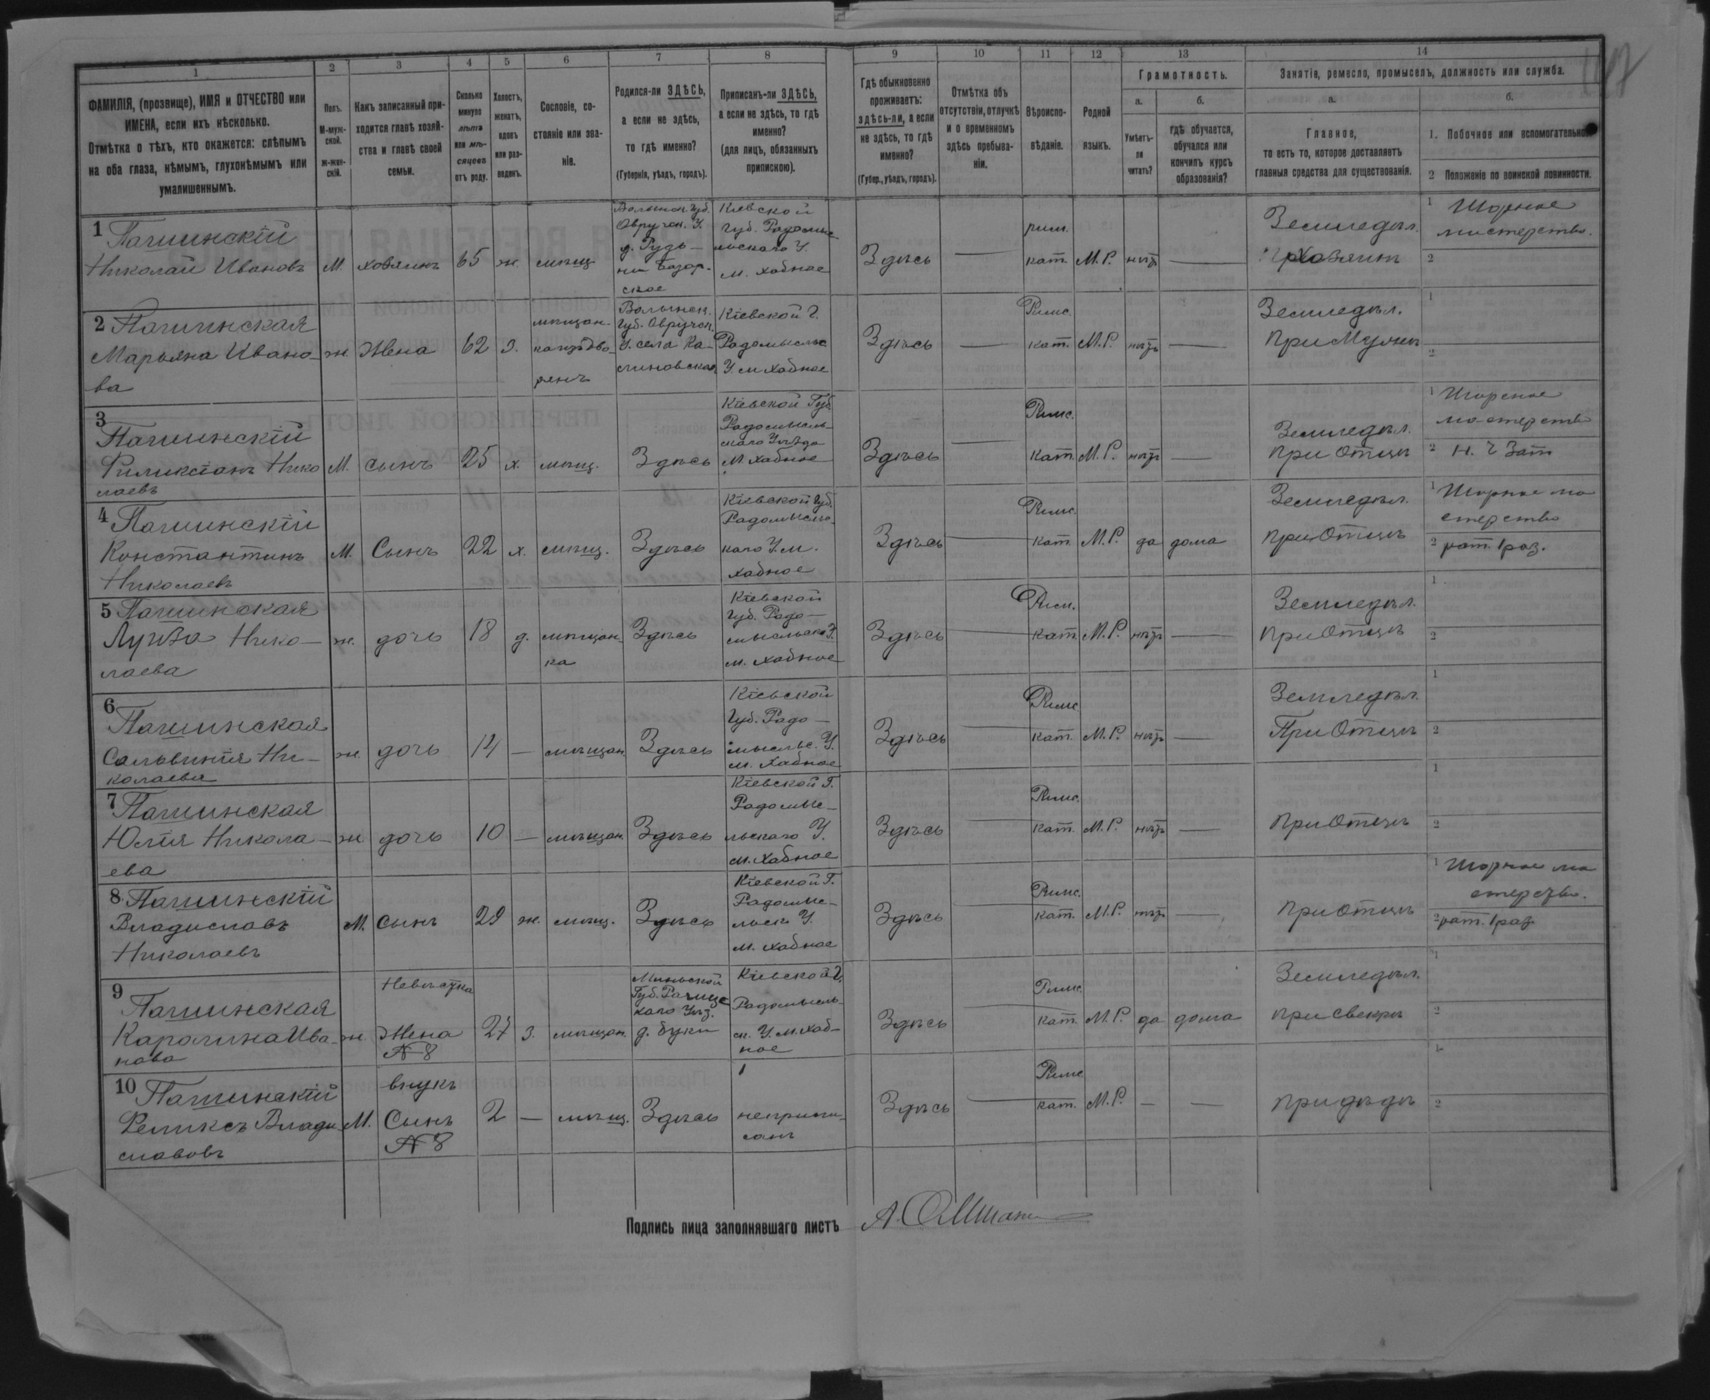 1 2 3 4 5 6 7 8 9 10 11 12 13 14
ФАМИЛІЯ, (прозвище), ИМЯ и ОТЧЕСТВО или ИМЕНА, если ихъ нѣсколько.
Отмѣтка о тѣхъ, кто окажется: слѣпымъ на оба глаза, нѣмымъ, глухонѣмымъ или умалишеннымъ.
Полъ.
М-мужской.
ж-женскій.
Какъ записанный приходится главѣ хозяйства и главѣ своей семьи.
Сколько минуло лѣтъ или мѣсяцевъ отъ роду.
Холостъ, женатъ, вдовъ или разведенъ.
Сословіе, состояніе или званіе.
Родился-ли ЗДѢСЬ, а если не здѣсь, то гдѣ именно?
(Губернія, уѣздъ, городъ).
Приписанъ-ли ЗДѢСЬ, а если не здѣсь, то гдѣ именно?
(для лицъ, обязанныхъ припискою).
Гдѣ обыкновенно проживаетъ: здѣсь-ли, а если не здѣсь, то гдѣ именно?
(Губер., уѣздъ, городъ).
Отмѣтка объ отсутствіи, отлучкѣ и о временномъ здѣсь пребываніи.
Вѣроисповѣданіе.
Родной языкъ.
Грамотность.
а. Умѣетъ-ли читать?
б. гдѣ обучается, обучался или кончилъ курсъ образованія?
Занятіе, ремесло, промыселъ, должность или служба.
а. Главное,
то есть то, которое доставляетъ главныя средства для существованія.
б.
1. Побочное или вспомогательное
2 Положеніе по воинской повинности.
1 Пашинскій Николай Ивановъ М. хозяинъ 65 ж. мѣщ. Волынск. Губ. Овруч. У. д. Рудьни Базарское Кіевской губ. Радомысльскаго У. м. Хабное Здѣсь — рим. кат. М.Р. нѣтъ — Земледѣл. Хозяинъ 1 Шорное мастерство. 2
2 Пашинская Марьяна Иванова ж. Жена 62 з. мѣщан. Волынск. Губ. Овруч. У. села Кіевской Г. Радомысльс У м Хабное Здѣсь — Римс. кат. М.Р. нѣтъ — Земледѣл. При Мужѣ 1 2
3 Пашинскій Филиксіанъ Николаевъ М. сынъ 25 х. мѣщ. Здѣсь Кіевской Губ Радомысльскаго Уѣзда М Хабное Здѣсь — Римс. кат. М.Р. нѣтъ Земледѣл. при Отцѣ 1 Шорное мастерство 2
4 Пашинскій Константинъ Николаевъ М. Сынъ 22 х. мѣщ. Здѣсь Кіевской Губ. Радомысльскаго У. м. Хабное Здѣсь — Римс. кат. М.Р. да дома Земледѣл. при Отцѣ 1 Шорное мастерство 2 рат. 1 раз.
5 Пашинская Луиза Николаева ж. дочь 18 д. мѣщанка Здѣсь Кіевской Губ. Радомысльскаго У. м. Хабное Здѣсь Римс. кат М.Р. нѣтъ — Земледѣл. при Отцѣ 1 2
6 Пашинская Сальвинія Николаевна ж. дочь 14 — мѣщан. Здѣсь Кіевской Губ. Радомысльс. У. м. Хабное Здѣсь — Римс. кат. М.Р. нѣтъ — Земледѣл. При Отцѣ 1 2
7 Пашинская Юлія Николаева ж дочь 10 — мѣщан. Здѣсь Кіевской Г. Радомысльскаго У. м. Хабное Здѣсь — Римс. кат. М.Р. нѣтъ — при Отцѣ 1 2
8 Пашинскій Владиславъ Николаевъ М. сынъ 29 ж. мѣщ. Здѣсь Кіевской Г. Радомысльск У. м. Хабное Здѣсь — Римс. кат. М.Р. нѣтъ — при Отцѣ 1 Шорное мастерство. 2 рат. 1 раз
9 Пашинская Каролина Иванова ж Невѣстка Жена № 8 27 з. мѣщан. Миньской Губ. Рѣчицскаго Уѣз. д. Буки Кіевской Г. Радомысльск. У. м. Хабное Здѣсь — Римс. кат. М.Р. да дома Земледѣл. при Свекрѣ 1 2
10 Пашинскій Феликсъ Владиславовъ М. внукъ Сынъ № 8 2 — мѣщ. Здѣсь неприписанъ Здѣсь — Римс кат. М.Р. — — при дѣдѣ 2
Подпись лица заполнявшаго листъ